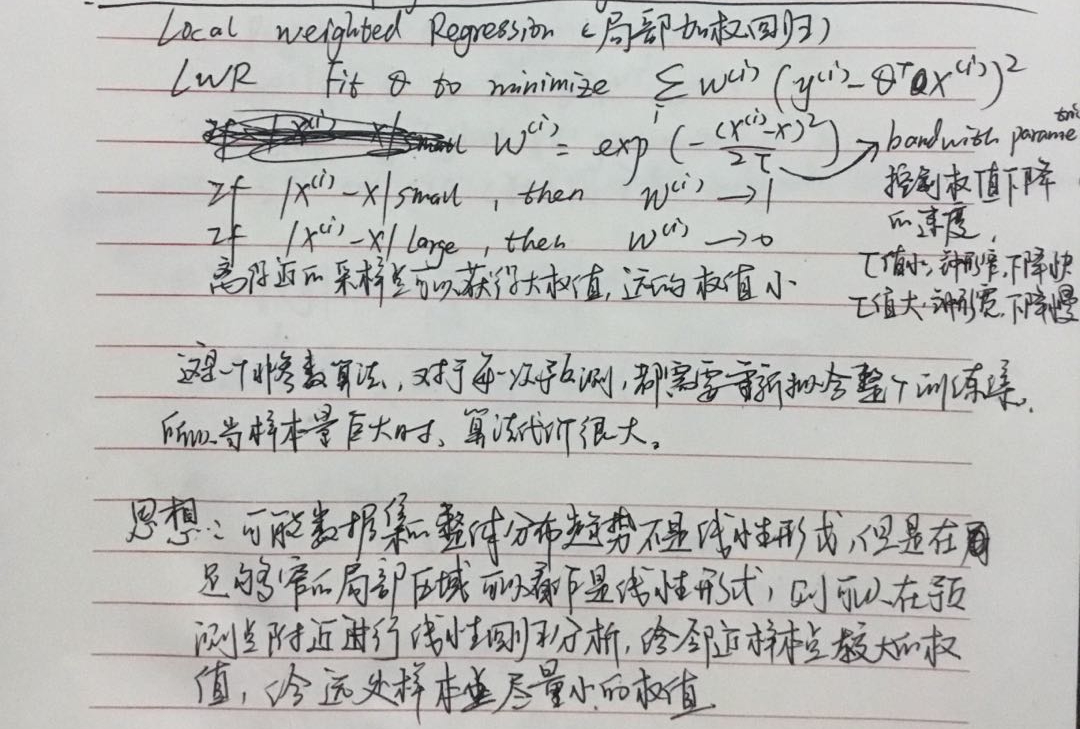 Local weighted Regression (局部加权回归)
LWR Fit θ to minimize ∑ᵢ w⁽ⁱ⁾ (y⁽ⁱ⁾ - θᵀ x⁽ⁱ⁾)²
w⁽ⁱ⁾ = exp (- (x⁽ⁱ⁾-x)² / 2τ) → bandwith parame
控制权值下降
If |x⁽ⁱ⁾-x| small, then w⁽ⁱ⁾ → 1
的速度,
If |x⁽ⁱ⁾-x| large, then w⁽ⁱ⁾ → 0
τ值小, 钟形窄, 下降快
离得近的采样点可以获得大权值, 远的权值小
τ值大, 钟形宽, 下降慢
这是一个非参数算法, 对于每一次预测, 都需要重新拟合整个训练集,
所以当样本量巨大时, 算法代价很大。
思想: 可能数据集的整体分布趋势不是线性形式, 但是在
足够窄的局部区域可以看作是线性形式, 则可以在预
测点附近进行线性回归分析, 给邻近样本点较大的权
值, 给远处样本点尽量小的权值